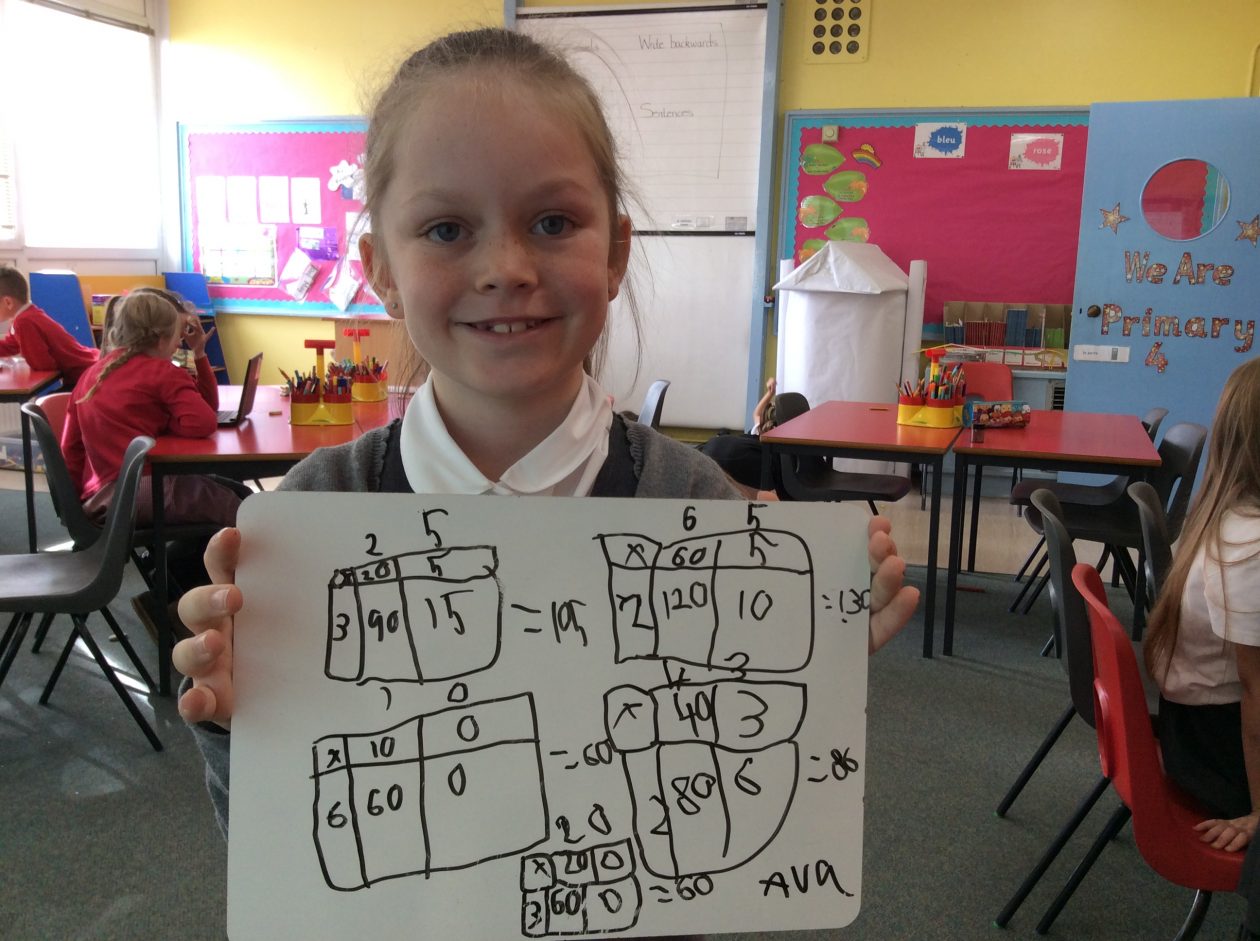 Wide backwards
Sentences
bleu
rose
We Are
Primary
4
2 5
x 20 5
3 90 15 = 105
6 5
x 60 5
2 120 10 = 130
1 0
x 10 0
6 60 0 = 60
4 3
x 40 3
2 80 6 = 86
2 0
x 20 0
3 60 0 = 60
Ava